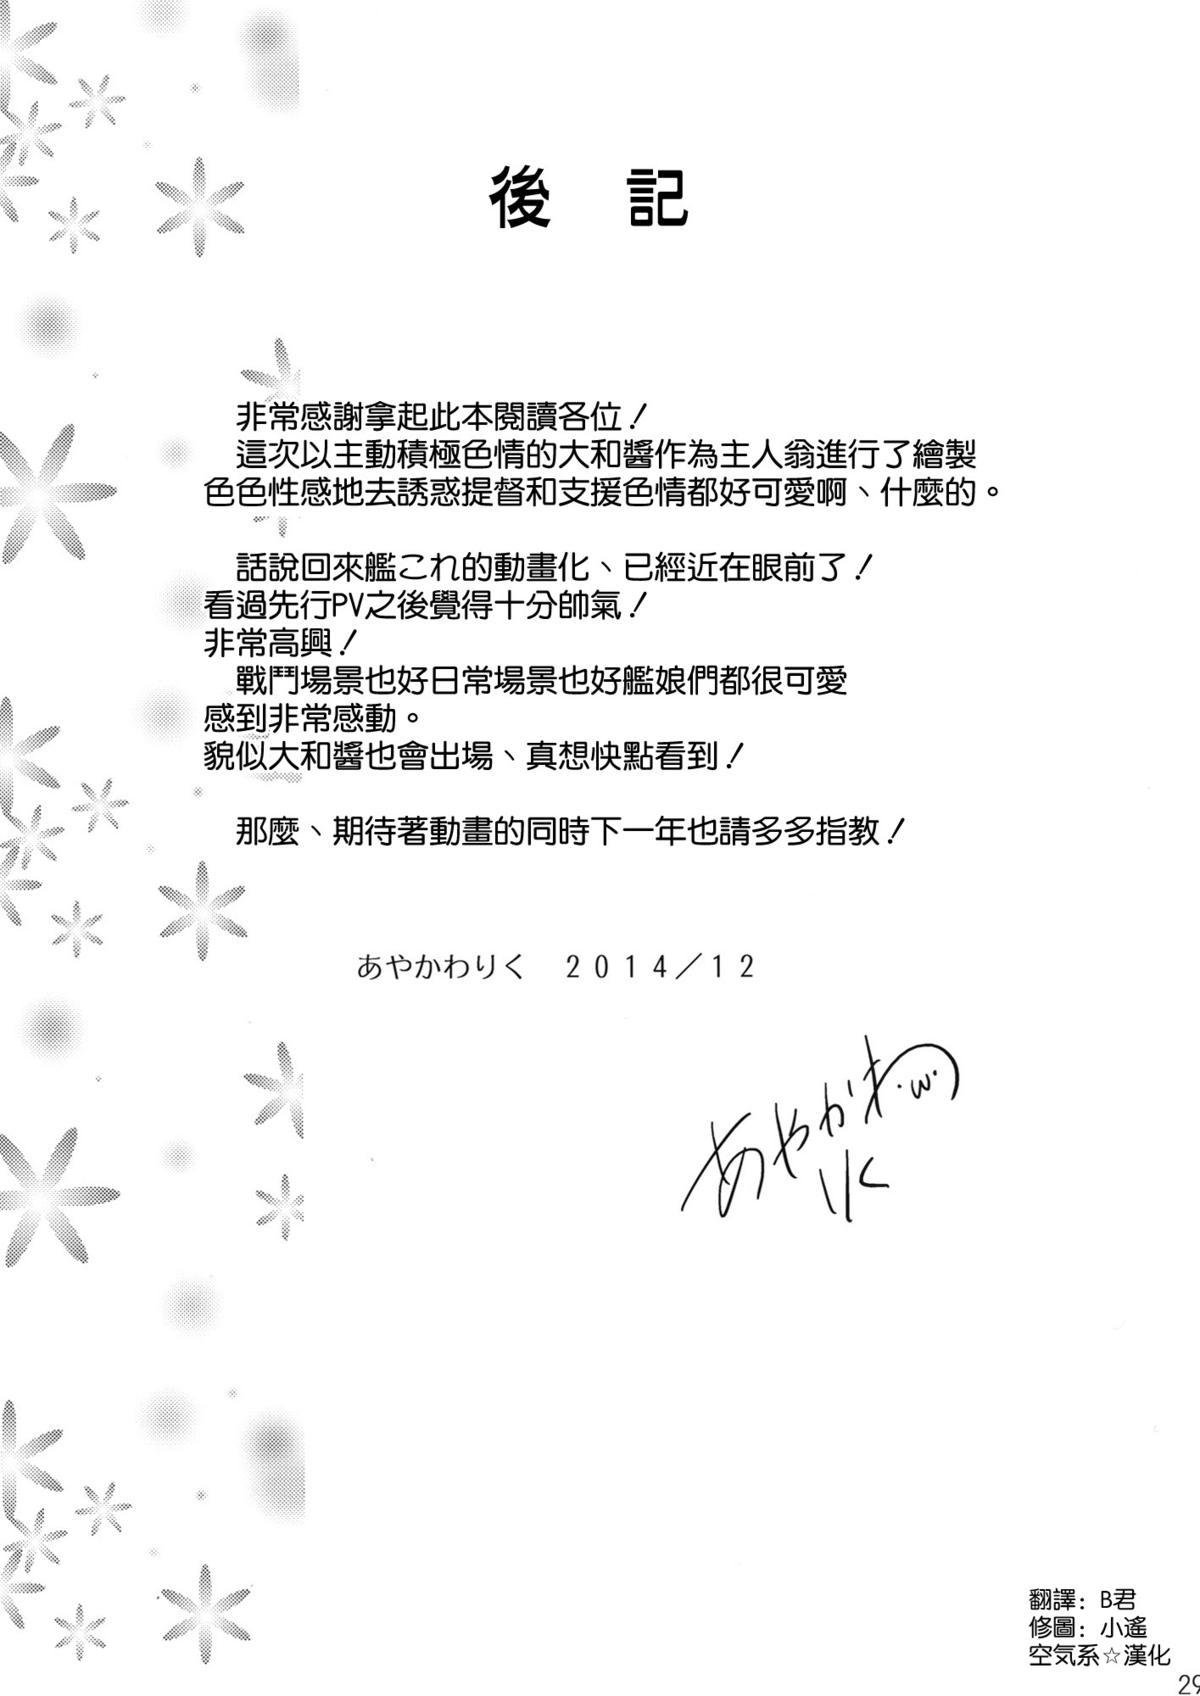 後 記
非常感謝拿起此本閱讀各位！
這次以主動積極色情的大和醬作為主人翁進行了繪製
色色性感地去誘惑提督和支援色情都好可愛啊、什麼的。
話說回來艦これ的動畫化、已經近在眼前了！
看過先行PV之後覺得十分帥氣！
非常高興！
戰鬥場景也好日常場景也好艦娘們都很可愛
感到非常感動。
貌似大和醬也會出場、真想快點看到！
那麼、期待著動畫的同時下一年也請多多指教！
あやかわりく　２０１４／１２
あやかわ
りく
翻譯: B君
修圖: 小遙
空気系☆漢化
29